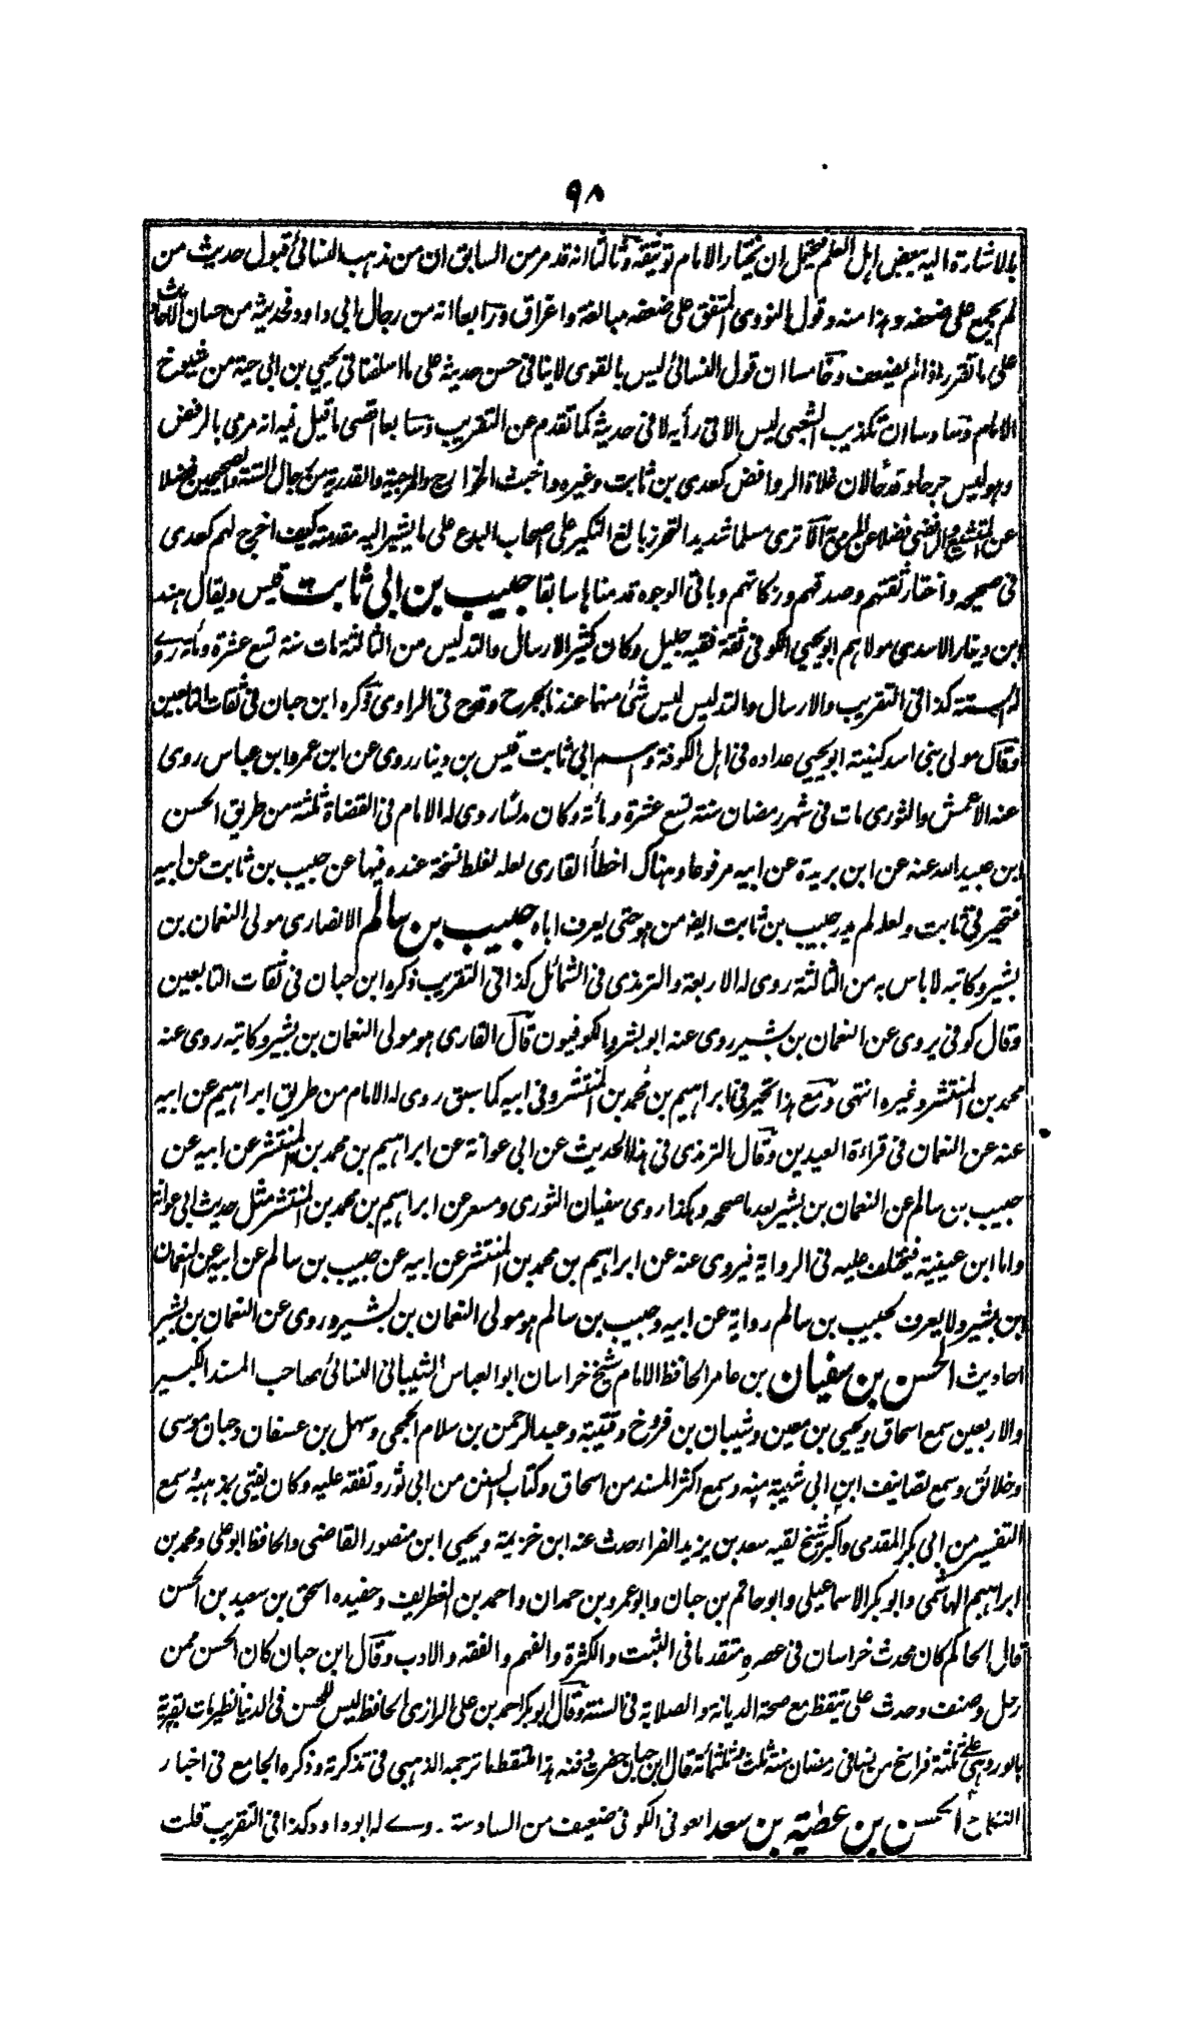 ٩٨
بالاشارة اليه بعض اهل العلم فيحتمل ان يختار الامام توثيقه وثالثا انه قد مر من السابق ان من مذهب النسائى قبول حديث من
لم يجمع على ضعفه وهذا منه وقول النووى المتفق على ضعفه مبالغة واغراق ورابعا انه من رجال ابى داود فحديثه من حسان الاحاديث
على ما تقرر اذا لم يضعف وخامسا ان قول النسائى ليس بالقوى لا ينافى حسن حديثه على ما اسلفنا فى يحيى بن ابى حية من شيوخ
الامام وسادسا ان تكذيب الشعبى ليس الا فى رأيه لا فى حديثه كما تقدم عن التقريب وسابعا اقصى ما قيل فيه انه رمى بالرفض
وهو ليس جرحا وقد خالان غلاة الروافض كعدى بن ثابت وغيره واخبث الخوارج والمرجية والقدرية من رجال الستة والصحيحين فضلا
عن المتشيع والرافضى فضلا عن المرمى به الا ترى مسلما شديد التحرز بالغ النكير على اصحاب البدع على ما يشير اليه مقدمته كيف اخرج لهم كعدى
فى صحيحه واختار ثقتهم وصدقهم وزكاتهم وباقى الوجوه قدمناها سابقا حبيب بن ابى ثابت قيس ويقال هند
ابن دينار الاسدى مولاهم ابو يحيى الكوفى ثقة فقيه جليل وكان كثير الارسال والتدليس من الثالثة مات سنة تسع عشرة ومائة روى
له الستة كذا فى التقريب والارسال والتدليس ليس شئ منهما عندنا بجرح وقدح فى الراوى وذكره ابن حبان فى ثقات التابعين
وقال مولى بنى اسد كنيته ابو يحيى عداده فى اهل الكوفة واسم ابى ثابت قيس بن دينار روى عن ابن عمر وابن عباس روى
عنه الاعمش والثورى مات فى شهر رمضان سنة تسع عشرة ومأة وكان مدلسا روى له الامام فى القضاة ثلثة من طريق الحسن
ابن عبيد الله عنه عن ابن بريدة عن ابيه مرفوعا وهناك اخطأ القارى لعله لغلط نسخة عنده فيها عن حبيب بن ثابت عن ابيه
فتحير فى ثابت ولعله لم يدر حبيب بن ثابت ايضا من هو حتى يعرف اباه حبيب بن سالم الانصارى مولى النعمان بن
بشير وكاتبه لا باس به من الثالثة روى له الاربعة والترمذى فى الشمائل كذا فى التقريب ذكره ابن حبان فى ثقات التابعين
وقال كوفى يروى عن النعمان بن بشير روى عنه ابو بشر والكوفيون قال القارى هو مولى النعمان بن بشير وكاتبه روى عنه
محمد بن المنتشر وغيره انتهى ومع هذا تحير فى ابراهيم بن محمد بن المنتشر وفى ابيه كما سبق روى له الامام من طريق ابراهيم عن ابيه
عنه عن النعمان فى قراءة العيدين وقال الترمذى فى هذا الحديث عن ابى عوانة عن ابراهيم بن محمد بن المنتشر عن ابيه عن
حبيب بن سالم عن النعمان بن بشير بعد ما صححه وهكذا روى سفيان الثورى ومسعر عن ابراهيم بن محمد بن المنتشر مثل حديث ابى عوانة
واما ابن عيينة فيختلف عليه فى الرواية فيروى عنه عن ابراهيم بن محمد بن المنتشر عن ابيه عن حبيب بن سالم عن ابيه عن النعمان
ابن بشير ولا يعرف لحبيب بن سالم رواية عن ابيه وحبيب بن سالم هو مولى النعمان بن بشير وروى عن النعمان بن بشير
احاديث الحسن بن سفيان بن عامر الحافظ الامام شيخ خراسان ابو العباس الشيبانى النسائى صاحب المسند الكبير
والاربعين سمع اسحاق ويحيى بن معين وشيبان بن فروخ وقتيبة وعبد الرحمن بن سلام الجمحى وسهل بن عسفان وحبان موسى
وخلائق وسمع تصانيف ابن ابى شيبة منه وسمع اكثر المسند من اسحاق وكتاب السنن من ابى ثور وتفقه عليه وكان يفتى بمذهبه سمع
التفسير من ابى بكر المقدمى واكبر شيخ لقيه سعد بن يزيد الفراء حدث عنه ابن خزيمة ويحيى ابن منصور القاضى والحافظ ابو على ومحمد بن
ابراهيم الهاشمى وابو بكر الاسماعيلى وابو حاتم بن حبان وابو عمرو بن حمدان واحمد بن الغطريف وحفيده اسحق بن سعيد بن الحسن
قال الحاكم كان محدث خراسان فى عصره متقدما فى الثبت والكثرة والفهم والفقه والادب وقال ابن حبان كان الحسن ممن
رحل وصنف وحدث على تيقظ مع صحة الديانة والصلابة فى السنة وقال ابو بكر احمد بن على الرازى الحافظ ليس للحسن فى الدنيا نظير مات بقرية
بالوز وهى على ثلثة فراسخ من نسا فى رمضان سنة ثلث وثلثمائة قال ابن حبان حضرت دفنه هذا ملتقط ما ترجمه الذهبى فى تذكرته وذكره الجامع فى اخبار
النكاح الحسن بن عطية بن سعد العوفى الكوفى ضعيف من السادسة روى له ابو داود كذا فى التقريب قلت